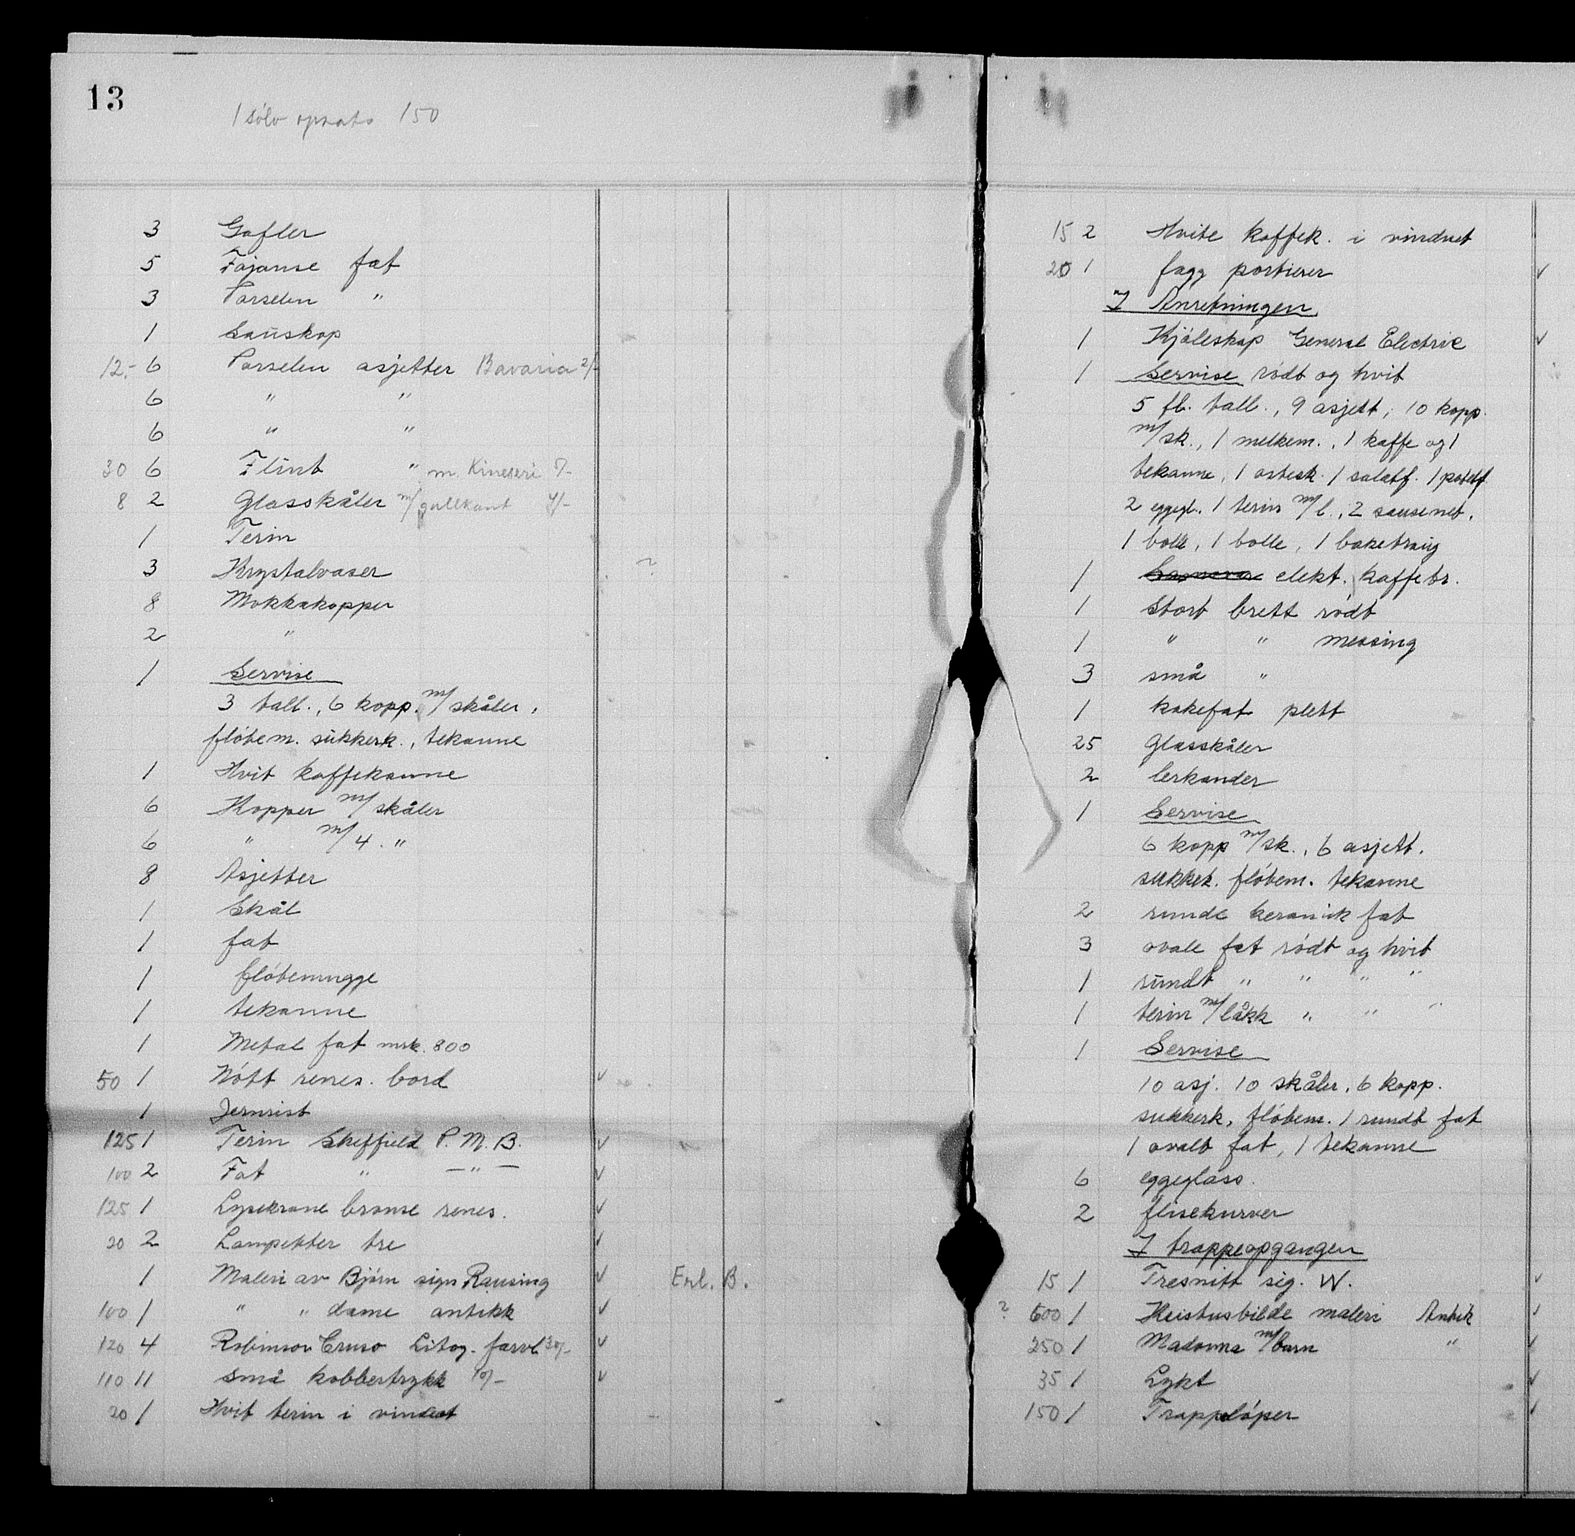 13
1 sølv opsats 150
3 Gafler
5 Fajanse fat
3 Porselen "
1 Sauskop
12.- 6 Porselen asjetter Bavaria 2/-
6 " "
6 " "
30 6 Flint " m. Kineseri 5/-
8 2 Glasskåler m/ gullkant 4/-
1 Terin
3 Krystalvaser ?
8 Mokkakopper
2 "
1 Servise
3 tall., 6 kopp. m/ skåler,
fløtem. sukkerk., tekanne
1 Hvit kaffekanne
6 Kopper m/ skåler
6 " m/ 4. "
8 Asjetter
1 Skål
1 fat
1 fløtemugge
1 tekanne
1 Metal fat mrk. 800
50 1 Nøtt renes. bord
1 Jernrist
125 1 Terin Sheffield P. M. B.
100 2 Fat " — " —
125 1 Lysekrone bronse renes.
20 2 Lampetter tre
1 Maleri av Bjørn sign Rausing Erl. B.
100 1 " " dame antikk
120 4 Robinson Cruso Litog. farvl 30/-
110 11 små kobbertrykk 10/-
20 1 Hvit terin i vinduet
15 2 Hvite kaffek. i vinduet
20 1 fagg portierer
I Anretningen
1 Kjøleskap General Electric
1 Servise rødt og hvit
5 fl. tall., 9 asjett, 10 kopp.
m/sk., 1 melkem., 1 kaffe og 1
tekanne, 1 ostesk. 1 salatf. 1 potetf
2 eggegl. 1 terin m/l., 2 sauseneb,
1 bolle, 1 bolle, 1 baketraug
1 elekt. kaffetr.
1 Stort brett rødt
1 " " messing
3 små "
1 kakefat plett
25 Glasskåler
2 lerkander
1 Servise
6 kopp m/sk., 6 asjett.
sukkek. fløtem. tekanne
2 runde keramik fat
3 ovale fat rødt og hvit
1 rundt " " " "
1 terin m/låkk " " "
1 Servise
10 asj. 10 skåler, 6 kopp.
sukkerk, fløtem. 1 rundt fat
1 ovalt fat, 1 tekanne
6 eggeglass.
2 flisekurver
I trappeopgangen
15 1 Tresnitt sig. W.
? 600 1 Kristusbilde maleri Antik
250 1 Madonna m/barn "
35 1 Lykt
150 1 Trappeløper